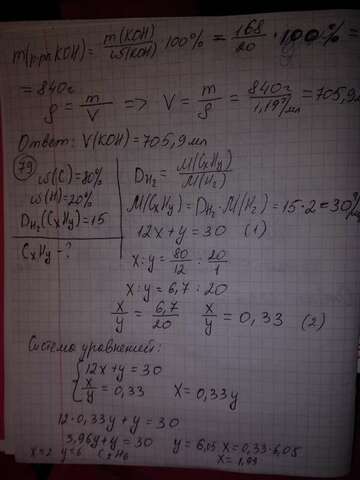 m(р-ра KOH) = m(KOH)/ω(KOH) · 100% = 168/20 · 100% =
= 840г
ρ = m/V => V = m/ρ = 840г/1,19г/мл = 705,9мл
Ответ: V(KOH) = 705,9 мл
79
ω(C) = 80%
ω(H) = 20%
D H₂(CxHy) = 15
CxHy - ?
D H₂ = M(CxHy)/M(H₂)
M(CxHy) = D H₂ · M(H₂) = 15 · 2 = 30
12x + y = 30 (1)
x : y = 80/12 : 20/1
x : y = 6,7 : 20
x/y = 6,7/20 x/y = 0,33 (2)
Система уравнений:
{12x + y = 30
x/y = 0,33 x = 0,33y
12 · 0,33y + y = 30
3,96y + y = 30 y = 6,05 x = 0,33 · 6,05
x = 2 y = 6 C₂H₆ x = 1,99